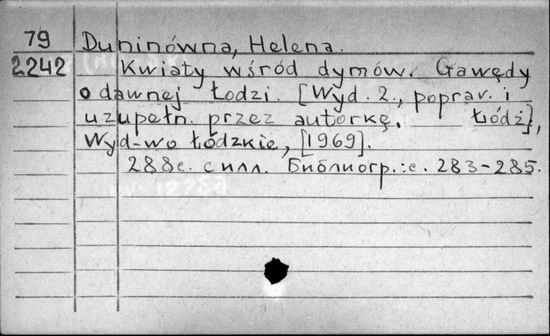 79 Duninówna, Helena.
2242 Kwiaty wśród dymów. Gawędy
o dawnej Łodzi. [Wyd. 2., poprav. i
uzupełn. przez autorkę. Łódź],
Wyd-wo Łódzkie, [1969].
288с. с илл. Библиогр.: с. 283-285.